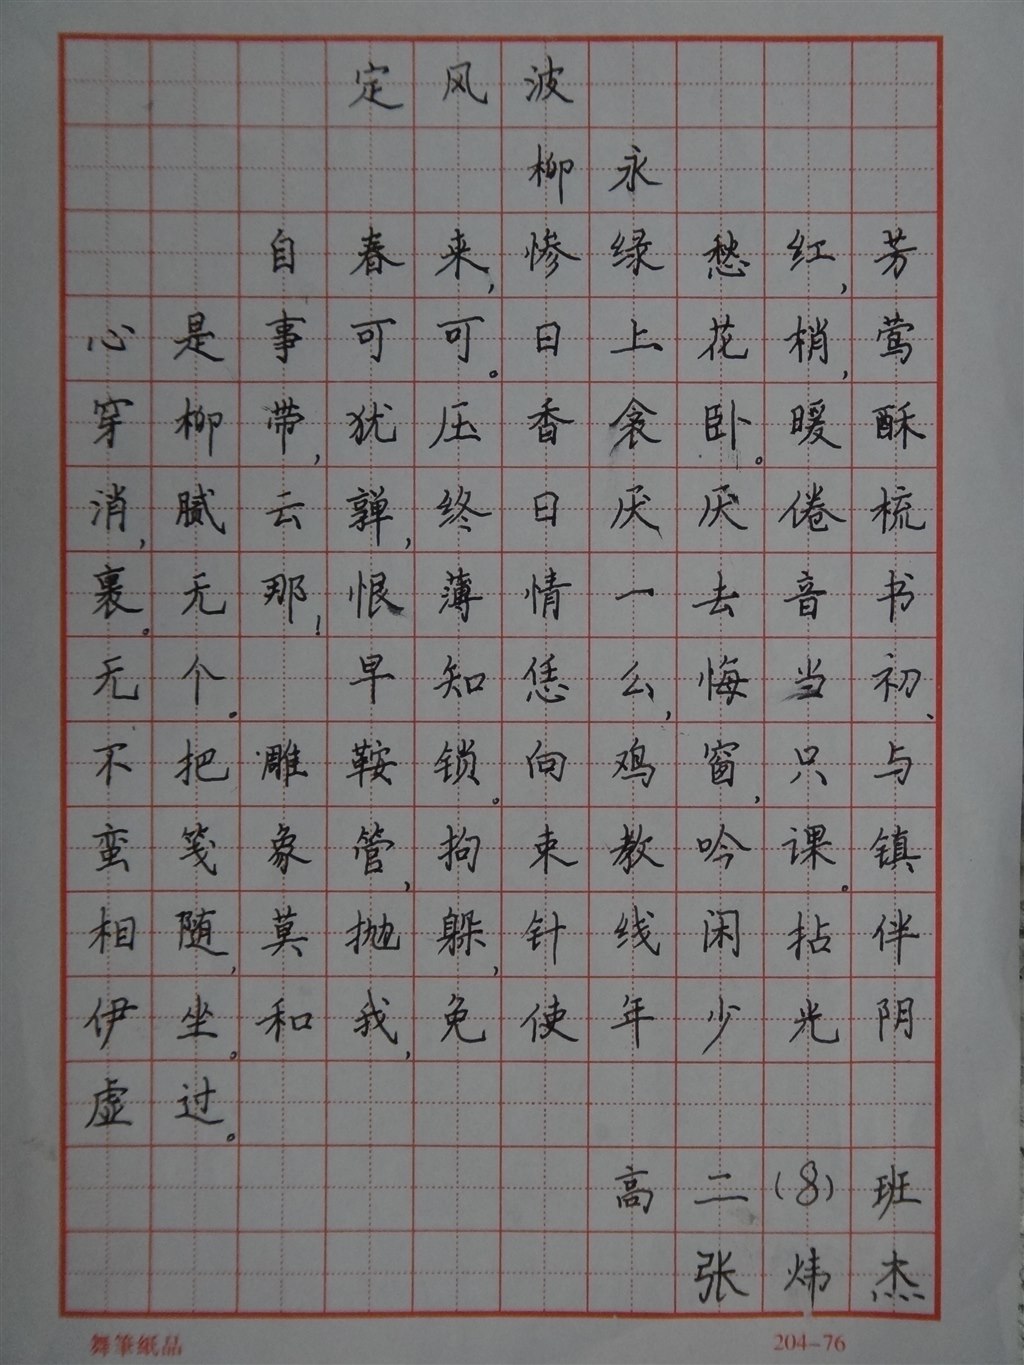 定风波
柳永
自春来，惨绿愁红，芳
心是事可可。日上花梢，莺
穿柳带，犹压香衾卧。暖酥
消，腻云亸，终日厌厌倦梳
裹。无那！恨薄情一去音书
无个。 早知恁么，悔当初、
不把雕鞍锁。向鸡窗，只与
蛮笺象管，拘束教吟课。镇
相随，莫抛躲，针线闲拈伴
伊坐。和我，免使年少光阴
虚过。
高二(8)班
张炜杰
舞筆紙品 204-76